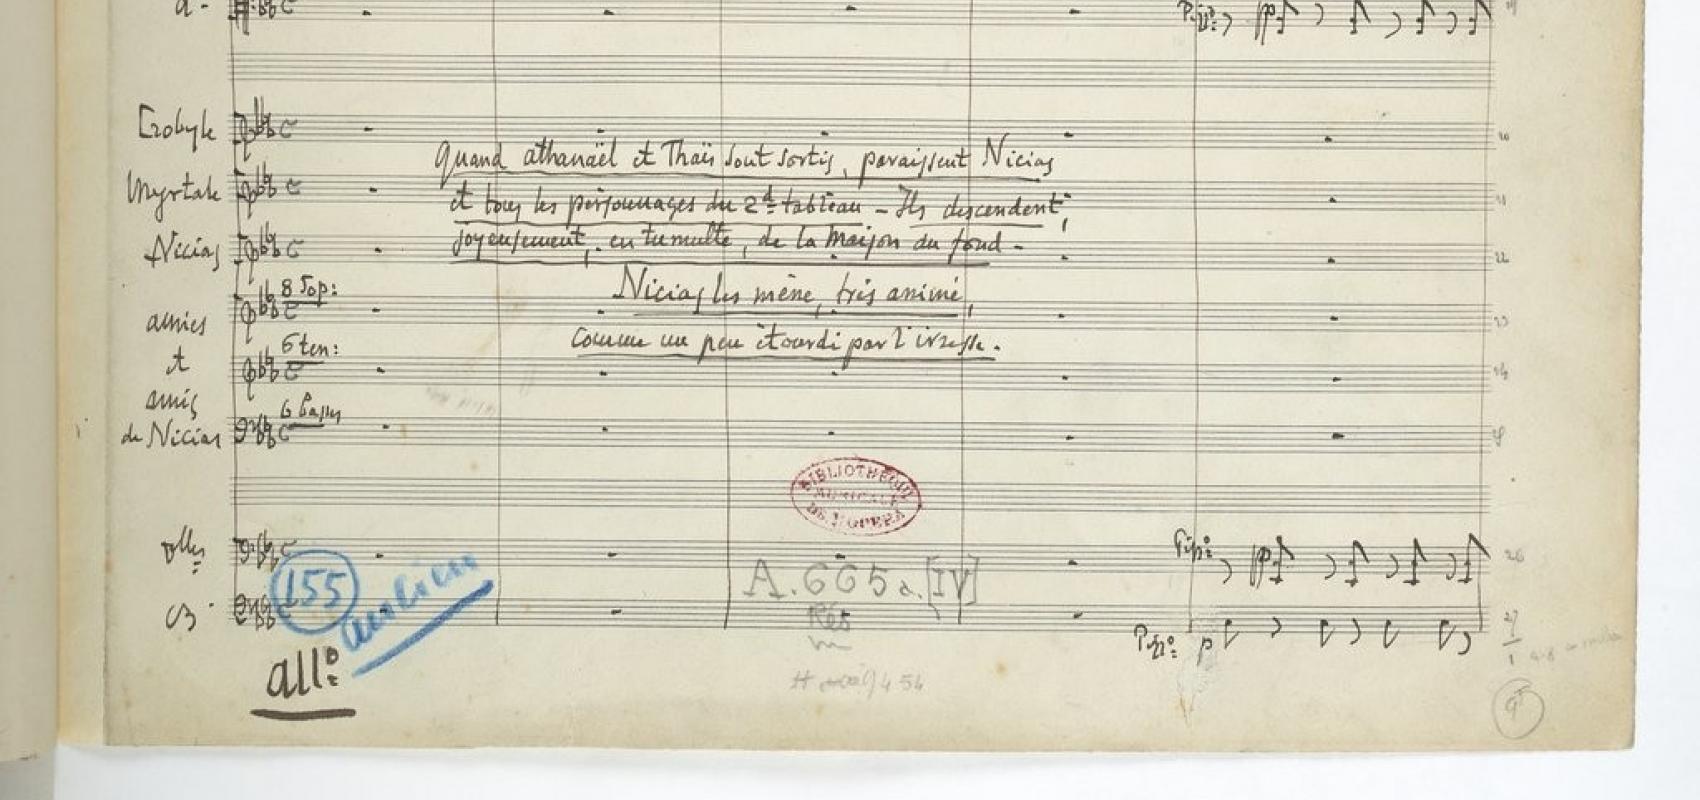 A.
Pizz:
Crobyle
Myrtale
Nicias
Quand athanaël et Thaïs sont sortis, paraissent Nicias
et tous les personnages du 2d tableau - Ils descendent,
joyeusement, en tumulte, de la maison du fond -
Nicias les mène, très animé,
comme un peu étourdi par l'ivresse.
amies
et
amis
de Nicias
8 Sop:
6 ten:
6 basses
BIBLIOTHÈQUE
MUSICALE
DE L'OPERA
vlles
CB
155
all°:
A.665 a.[IV]
Rés
Pizz:
p
26
27